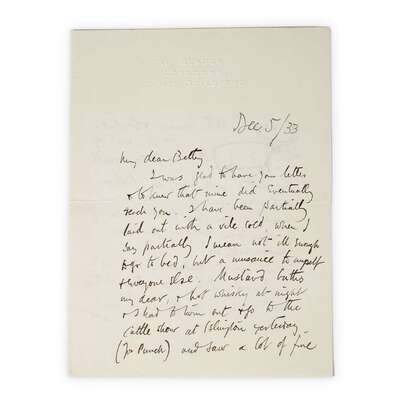 Dec. 5/33
My dear Betty
I was glad to have your letter
& to know that mine did eventually
reach you. I have been partially
laid out with a vile cold, when I
say partially I mean not ill enough
to go to bed, but a nuisance to myself
& everyone else. Mustard baths
my dear, & hot whisky at night
& I had to turn out & go to the
cattle show at Islington yesterday
(for Punch) and saw a lot of fine